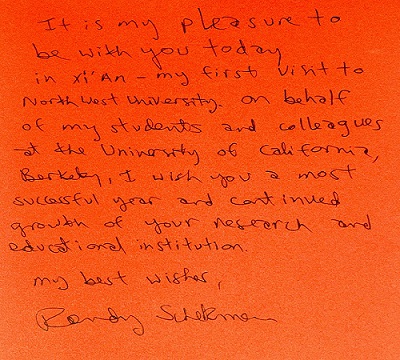 It is my pleasure to
be with you today
in Xi'An - my first visit to
Northwest University. On behalf
of my students and colleagues
at the University of California,
Berkeley, I wish you a most
successful year and continued
growth of your research and
educational institution.
my best wishes,
Randy Schekman